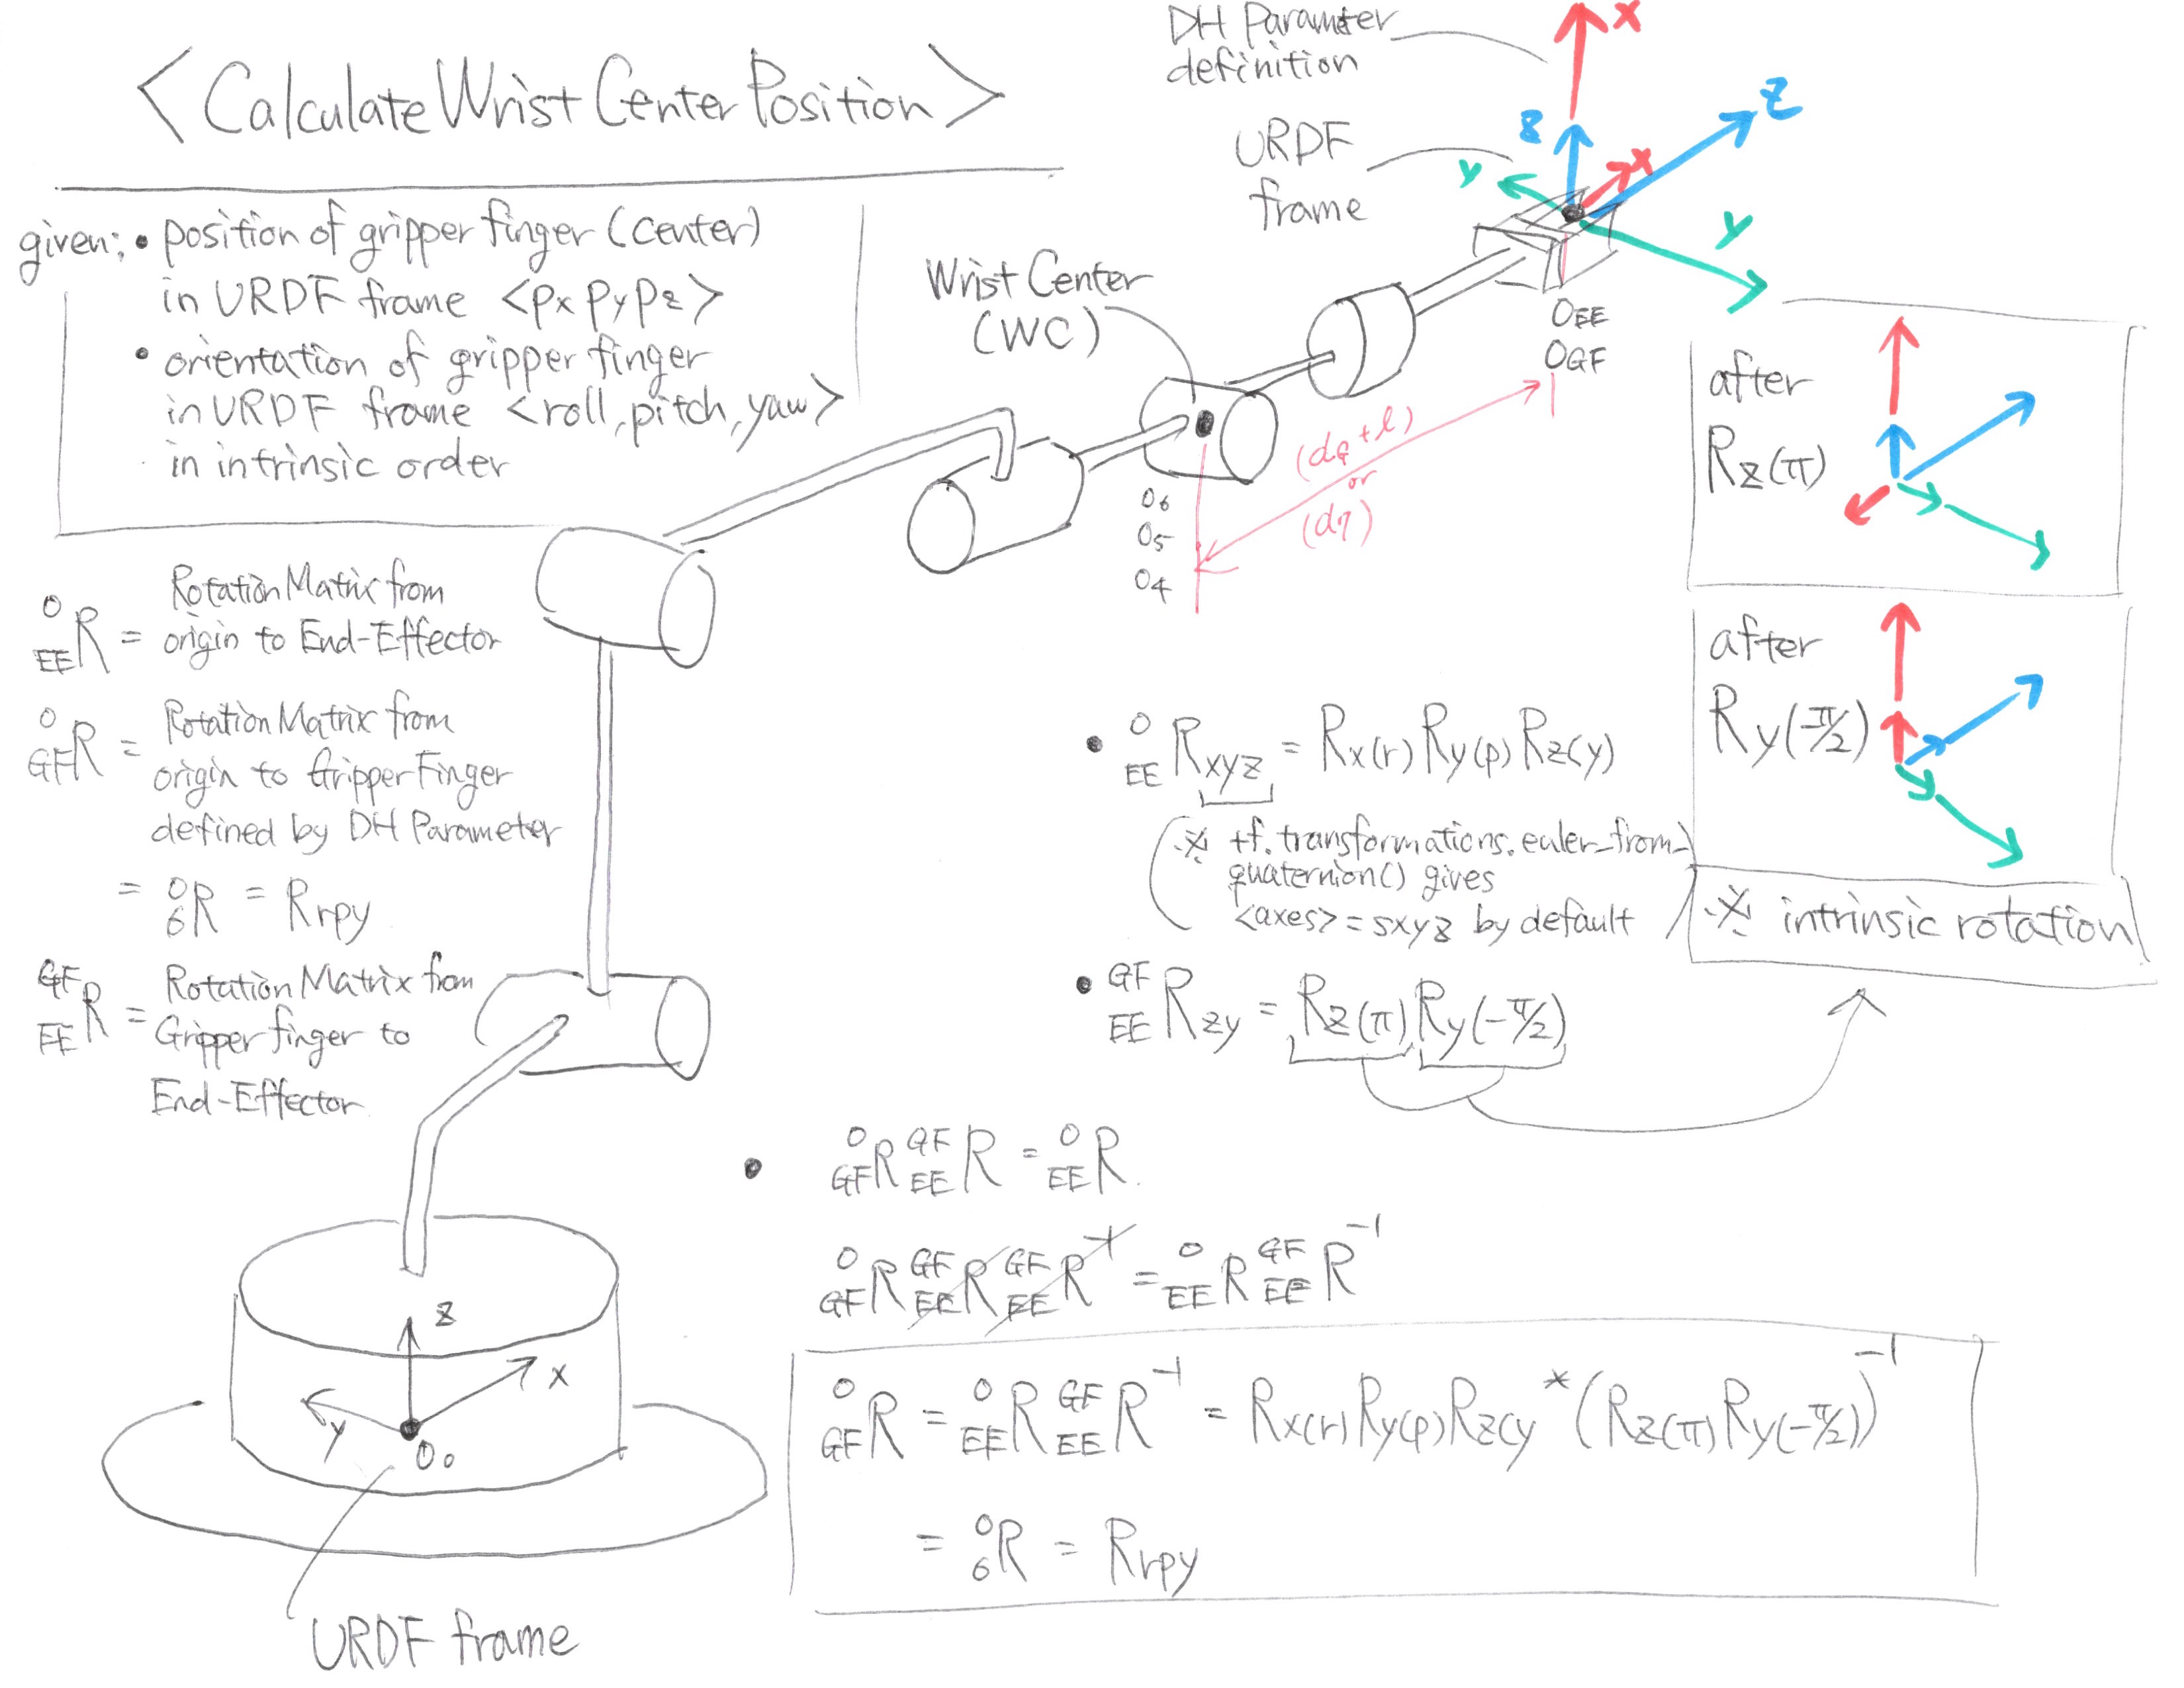 <Calculate Wrist Center Position>
given: • position of gripper finger (center)
in URDF frame <px py pz>
• orientation of gripper finger
in URDF frame <roll, pitch, yaw>
in intrinsic order
DH Parameter
definition
URDF
frame
x
z
z
x
y
y
Wrist Center
(WC)
OEE
OGF
O6
O5
O4
(d6+l)
or
(d7)
after
Rz(π)
after
Ry(-π/2)
※ intrinsic rotation
0 EE R = Rotation Matrix from
origin to End-Effector
0 GF R = Rotation Matrix from
origin to Gripper Finger
defined by DH Parameter
= 0 6 R = Rrpy
GF EE R = Rotation Matrix from
Gripper finger to
End-Effector
• 0 EE Rxyz = Rx(r) Ry(p) Rz(y)
(※ tf.transformations.euler_from_
quaternion() gives
<axes> = sxyz by default)
• GF EE Rzy = Rz(π) Ry(-π/2)
• 0 GF R GF EE R = 0 EE R
0 GF R GF EE R GF EE R -1 = 0 EE R GF EE R -1
0 GF R = 0 EE R GF EE R -1 = Rx(r) Ry(p) Rz(y * (Rz(π) Ry(-π/2)) -1
= 0 6 R = Rrpy
z
x
y
O0
URDF frame